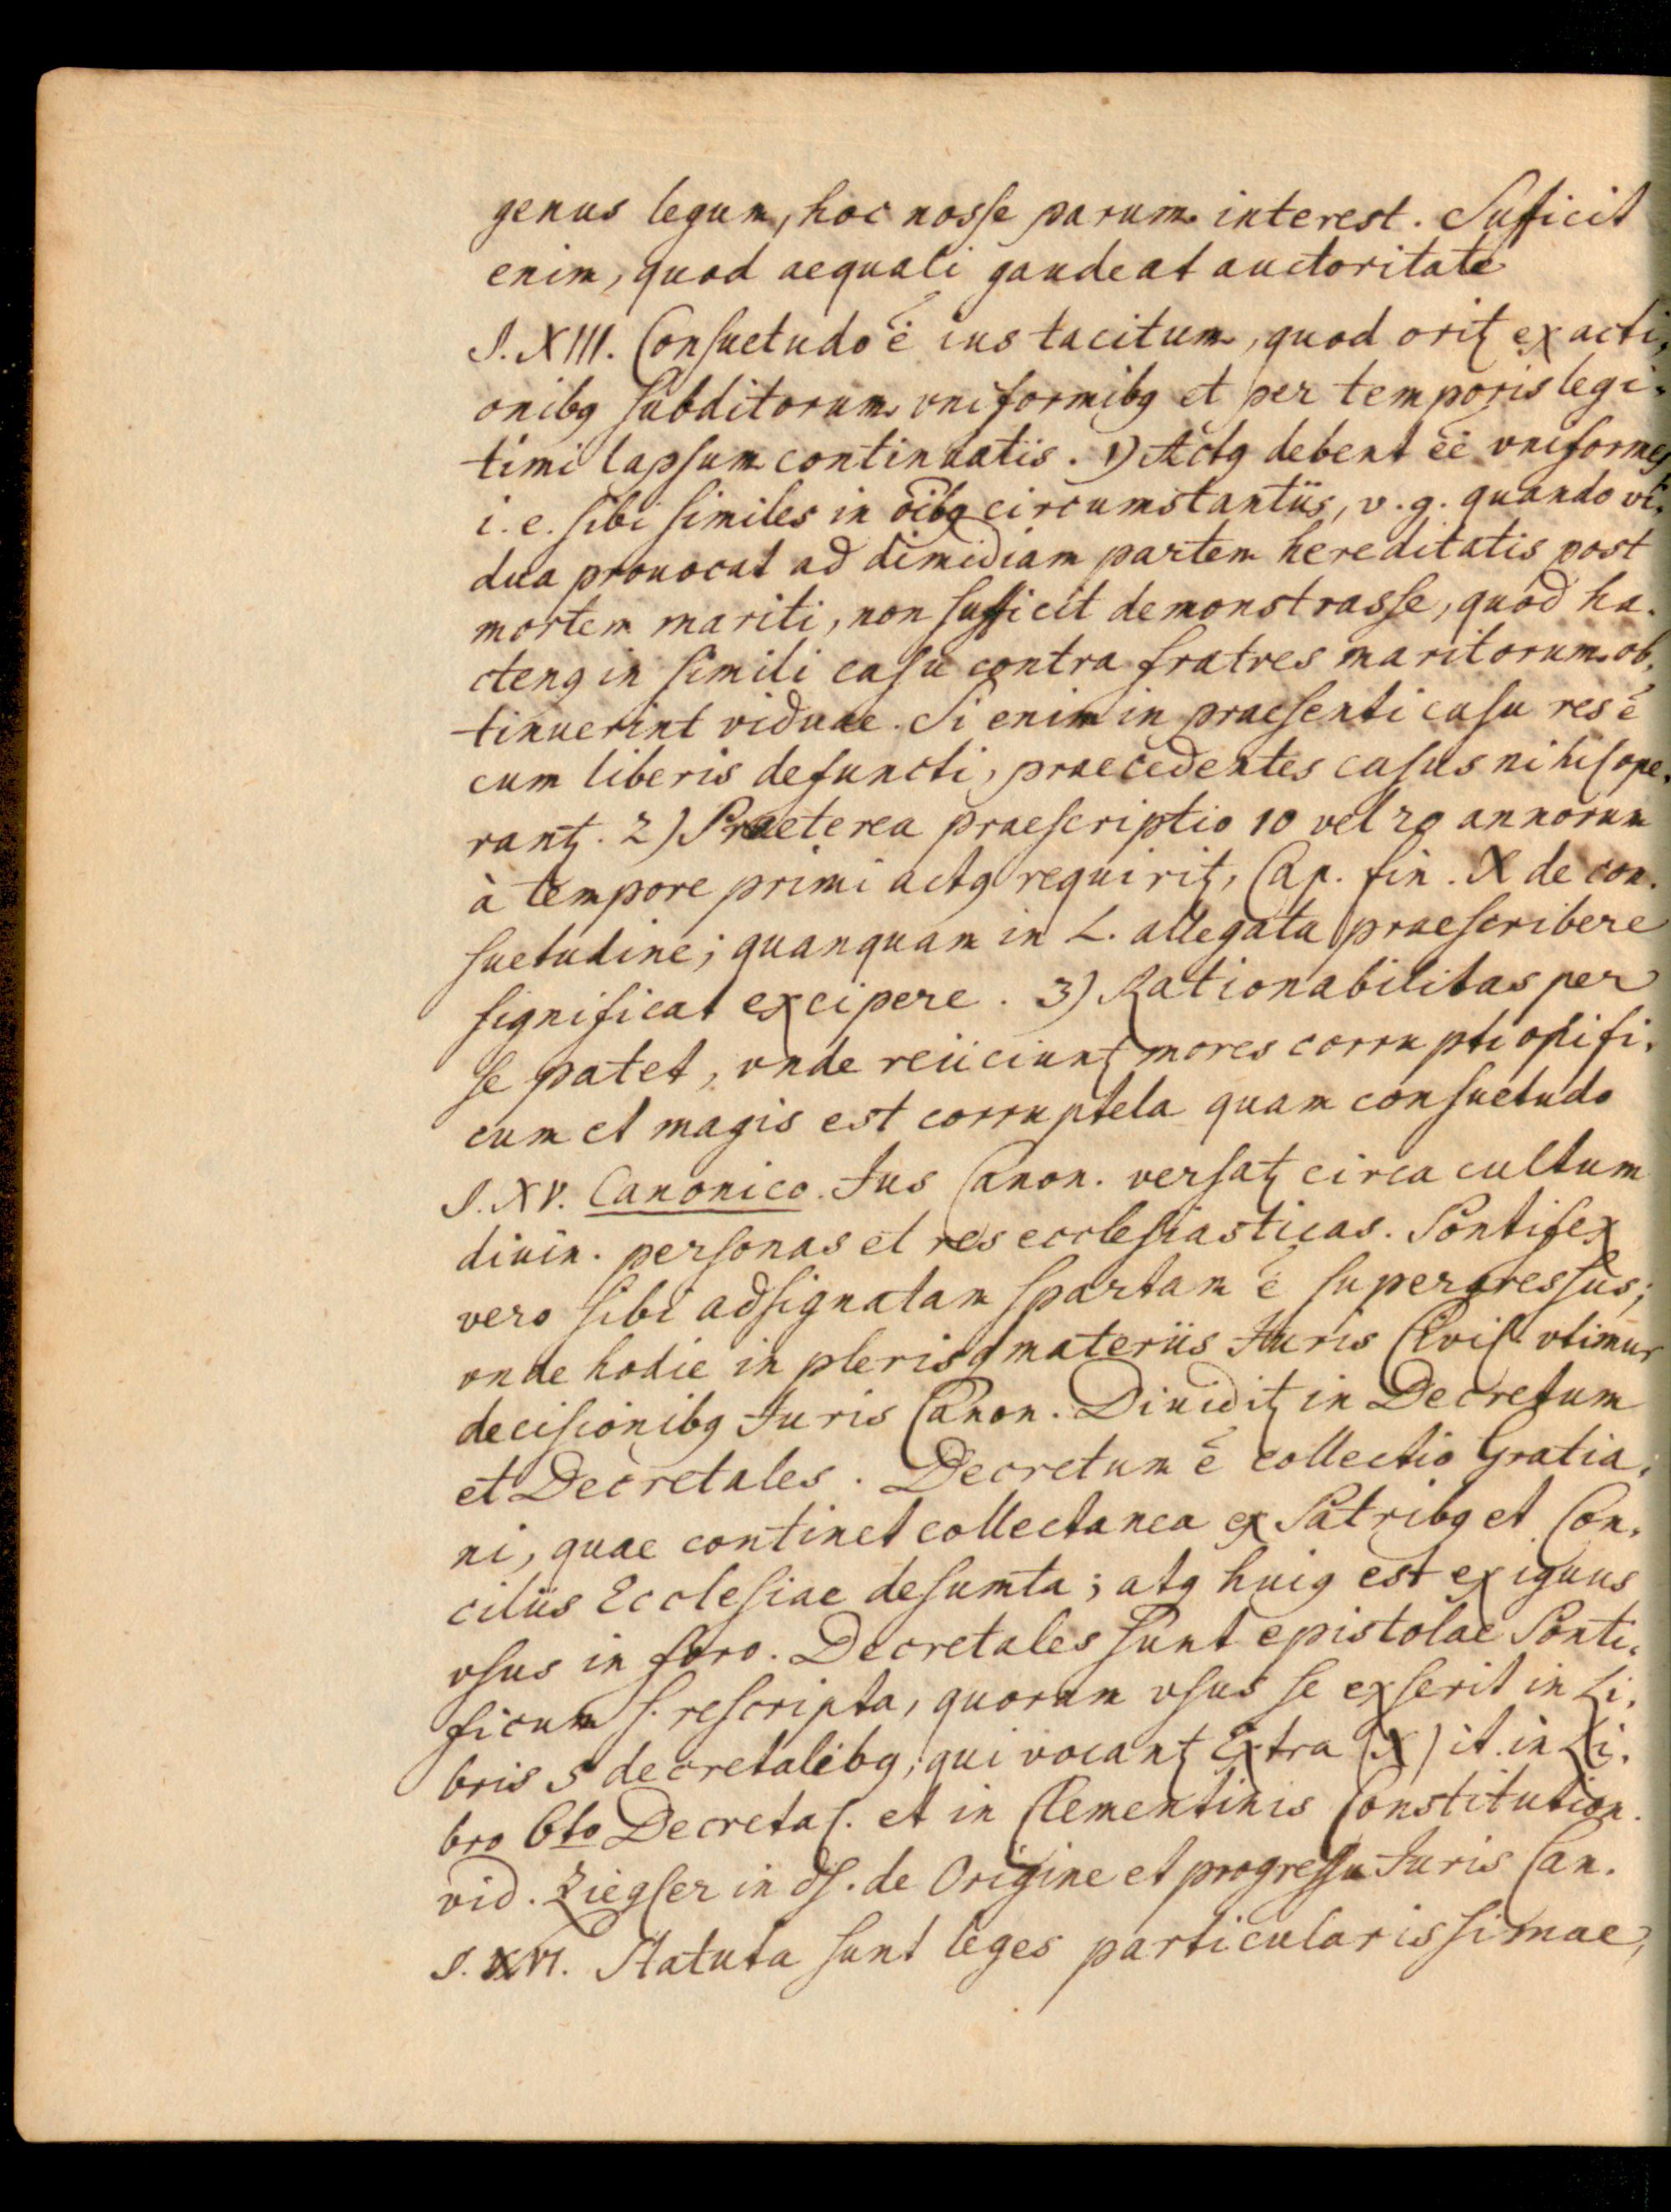 genus legum, hoc nosse parum interest. Suficit
enim, quod aequali gaudeat auctoritate
§. XIII. Consuetudo ē ius tacitum, quod oritꝫ ex acti-
onibꝫ subditorum vniformibꝫ et per temporis legi-
timi lapsum continuatis. 1) Actꝫ debent ēē vniformes
i. e. sibi similes in oībꝫ circumstantiis, v. g. quando vi-
dua prouocat ad dimidiam partem hereditatis post
mortem mariti, non sufficit demonstrasse, quod ha-
ctenꝫ in simili casu contra fratres maritorum ob-
tinuerint viduae. Si enim in praesenti casu res ē
cum liberis defuncti, praecedentes casus nihil ope-
rantꝫ. 2) Praeterea praescriptio 10 vel 20 annorum
à tempore primi actꝫ requiritꝫ, Cap. fin. X de con-
suetudine; quanquam in L. allegata praescribere
significat excipere. 3) Rationabilitas per
se patet, vnde reiiciuntꝫ mores corrupti opifi-
cum et magis est corruptela quam consuetudo
§. XV. Canonico. Jus Canon. versatꝫ circa cultum
diuin. personas et res ecclesiasticas. Pontifex
vero sibi adsignatam spartam ē supergressus;
vnde hodie in plerisqꝫ materiis Juris Civil. vtimur
decisionibꝫ Juris Canon. Diuiditꝫ in Decretum
et Decretales. Decretum ē collectio Gratia-
ni, quae continet collectanea ex Patribꝫ et Con-
ciliis Ecclesiae desumta; atqꝫ huiꝫ est exiguus
vsus in foro. Decretales sunt epistolae Ponti-
ficum s. rescripta, quorum vsus se exserit in Li-
bris 5 decretalibꝫ, qui vocantꝫ Extra (X) it. in Li-
bro 6to Decretal. et in Clementinis Constitution.
vid. Ziegler in ds. de Origine et progressu Juris Can.
§. XVI. Statuta sunt leges particularissimae,